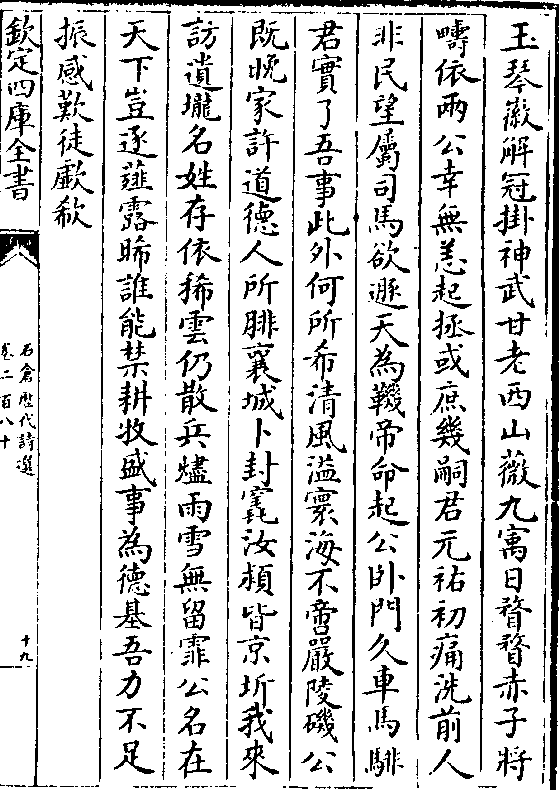 玉琴徽解冠掛神武甘老西山薇九寓日瞀瞀赤子將
疇依兩公幸無恙起拯或庶幾嗣君元祐初痛洗前人
非民望屬司馬欲遯天為鞿帝命起公卧門久車馬騑
君實了吾事此外何所希清風溢寰海不啻嚴陵磯公
既晚家許道德人所腓襄城卜封窀汝潁皆京圻我來
訪遺壠名姓存依稀雲仍散兵燼雨雪無留霏公名在
天下豈逐薤露晞誰能禁耕牧盛事為德基吾力不足
振感歎徒歔欷
欽定四庫全書
石倉歴代詩選
卷二百八十
十九